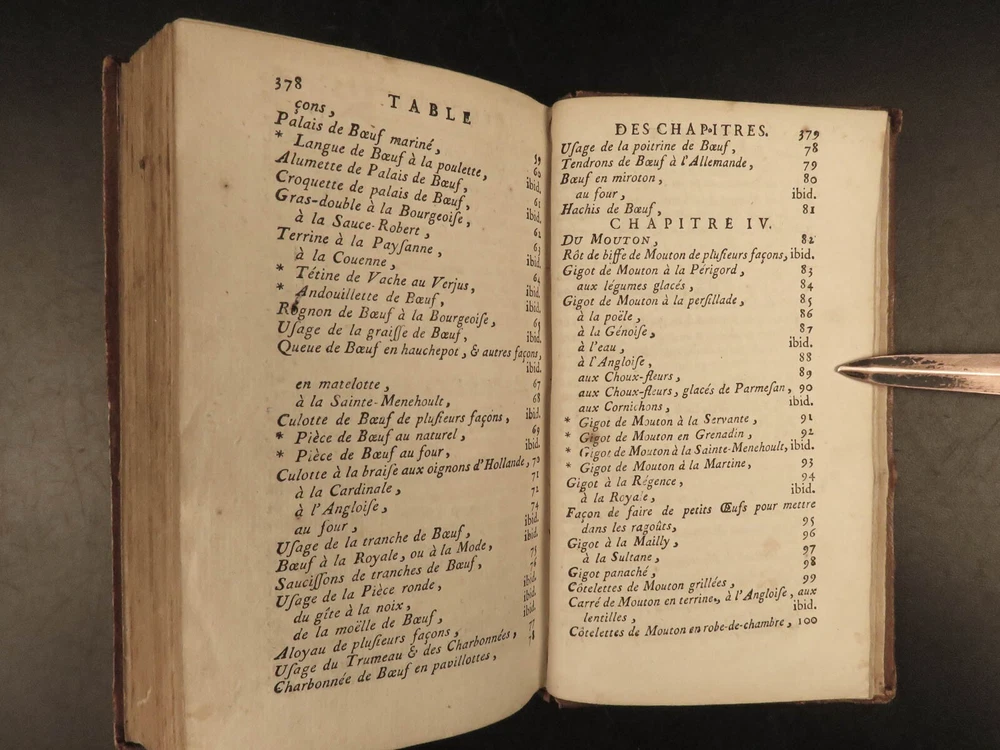 378 TABLE
çons, 59
Palais de Bœuf mariné, 60
* Langue de Bœuf à la poulette, ibid.
Alumette de Palais de Bœuf, 61
Croquette de palais de Bœuf, ibid.
Gras-double à la Bourgeoiſe, 62
à la Sauce-Robert, 63
Terrine à la Payſanne, ibid.
à la Couenne, 64
* Tétine de Vache au Verjus, ibid.
* Andouillette de Bœuf, ibid.
Rognon de Bœuf à la Bourgeoiſe, 65
Uſage de la graiſſe de Bœuf, ibid.
Queue de Bœuf en hauchepot, & autres façons,
ibid.
en matelotte, 67
à la Sainte-Menehoult, 68
Culotte de Bœuf de pluſieurs façons, ibid.
* Pièce de Bœuf au naturel, 69
* Pièce de Bœuf au four, ibid.
Culotte à la braiſe aux oignons d'Hollande, 70
à la Cardinale, 71
à l'Angloiſe, 72
au four, 74
Uſage de la tranche de Bœuf, ibid.
Bœuf à la Royale, ou à la Mode, ibid.
Sauciſſons de tranches de Bœuf, 75
Uſage de la Pièce ronde, 76
du gîte à la noix, ibid.
de la moëlle de Bœuf, ibid.
Aloyau de pluſieurs façons, ibid.
Uſage du Trumeau & des Charbonnées, 77
Charbonnée de Bœuf en pavillottes, 78
DES CHAPITRES. 379
Uſage de la poitrine de Bœuf, 78
Tendrons de Bœuf à l'Allemande, 79
Bœuf en miroton, 80
au four, ibid.
Hachis de Bœuf, 81
CHAPITRE IV.
DU MOUTON, 82
Rôt de biffe de Mouton de pluſieurs façons, ibid.
Gigot de Mouton à la Périgord, 83
aux légumes glacés, 84
Gigot de Mouton à la perſillade, 85
à la poële, 86
à la Génoiſe, 87
à l'eau, ibid.
à l'Angloiſe, 88
aux Choux-fleurs, 89
aux Choux-fleurs, glacés de Parmeſan, 90
aux Cornichons, ibid.
* Gigot de Mouton à la Servante, 91
* Gigot de Mouton en Grenadin, 92
* Gigot de Mouton à la Sainte-Menehoult, ibid.
* Gigot de Mouton à la Martine, 93
Gigot à la Régence, 94
à la Royale, ibid.
Façon de faire de petits Œufs pour mettre
dans les ragoûts, 95
Gigot à la Mailly, 96
à la Sultane, 97
Gigot panaché, 98
Côtelettes de Mouton grillées, 99
Carré de Mouton en terrine, à l'Angloiſe, aux
lentilles, ibid.
Côtelettes de Mouton en robe-de-chambre, 100